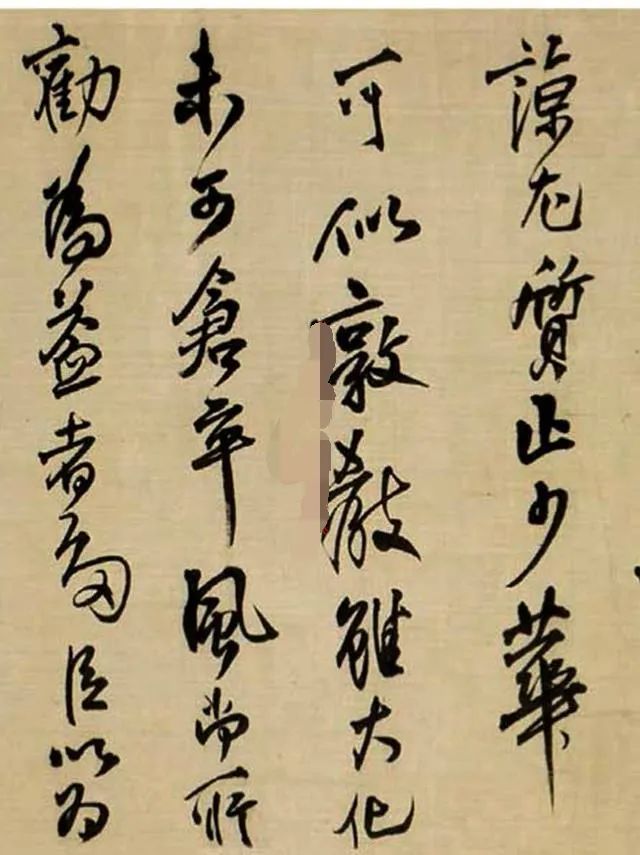 諒尤質正少華
可似敦教雖大化
未可倉卒風尚所
勸為益者多臣以为